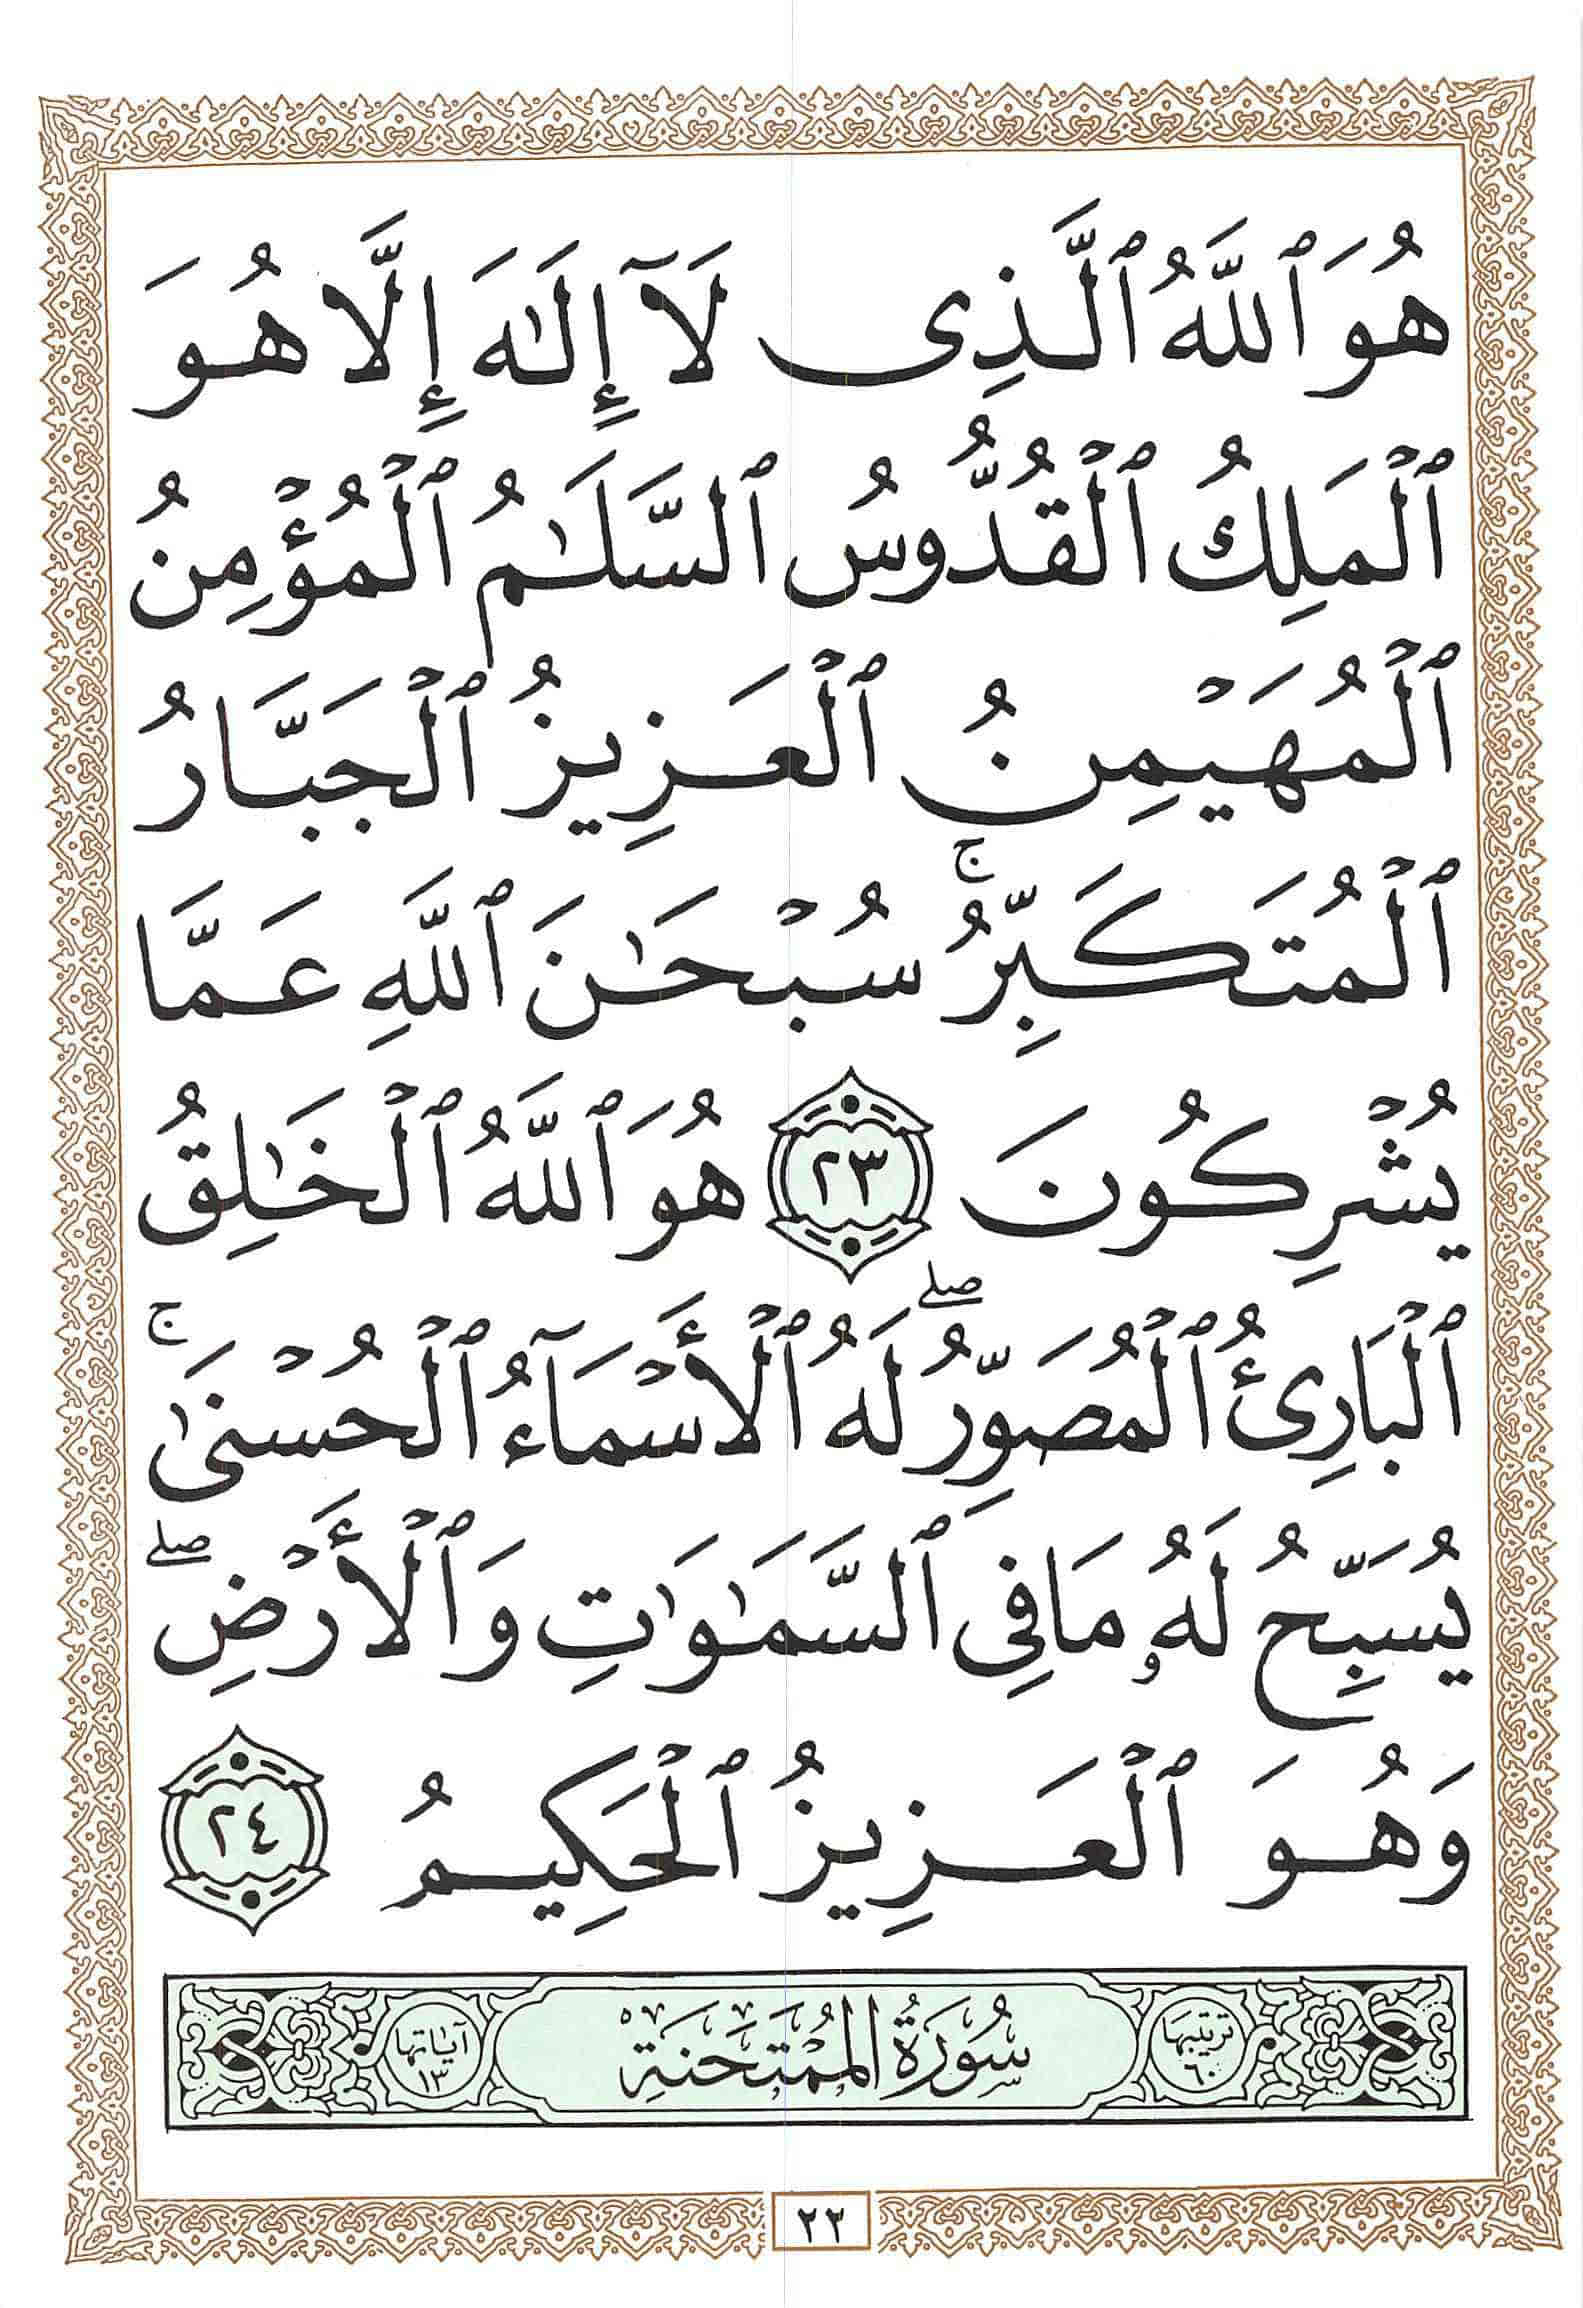 هُوَ ٱللَّهُ ٱلَّذِى لَآ إِلَـٰهَ إِلَّا هُوَ
ٱلْمَلِكُ ٱلْقُدُّوسُ ٱلسَّلَـٰمُ ٱلْمُؤْمِنُ
ٱلْمُهَيْمِنُ ٱلْعَزِيزُ ٱلْجَبَّارُ
ٱلْمُتَكَبِّرُ ۚ سُبْحَـٰنَ ٱللَّهِ عَمَّا
يُشْرِكُونَ ٢٣ هُوَ ٱللَّهُ ٱلْخَـٰلِقُ
ٱلْبَارِئُ ٱلْمُصَوِّرُ ۖ لَهُ ٱلْأَسْمَآءُ ٱلْحُسْنَىٰ ۚ
يُسَبِّحُ لَهُۥ مَا فِى ٱلسَّمَـٰوَٰتِ وَٱلْأَرْضِ ۖ
وَهُوَ ٱلْعَزِيزُ ٱلْحَكِيمُ ٢٤
ترتيبها ٦٠ سُورَةُ المُمْتَحَنَةِ آيَاتها ١٣
٢٢